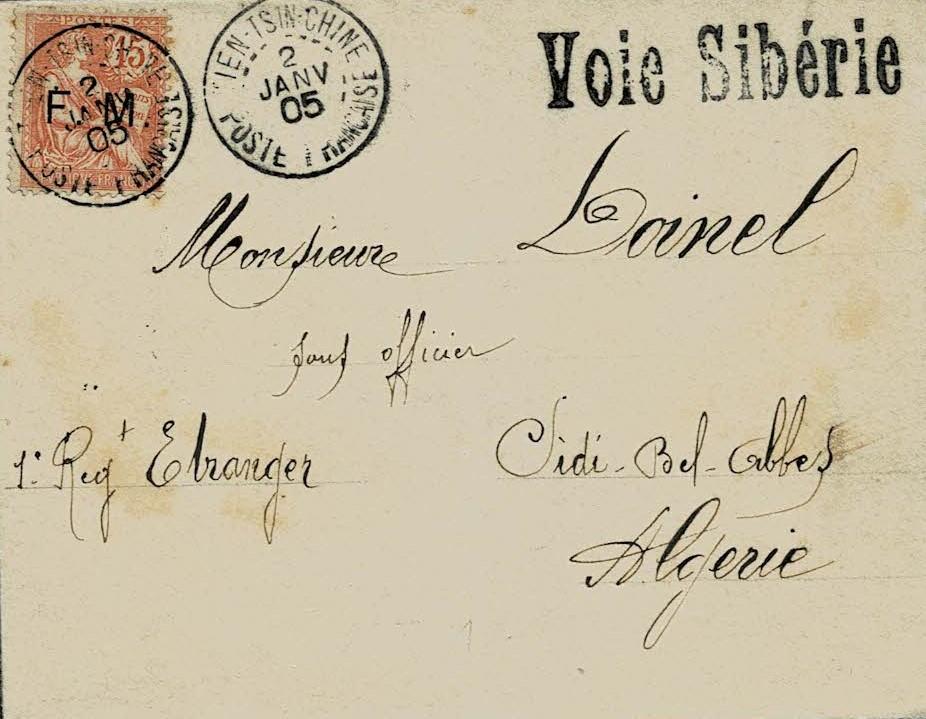 POSTES
15
F. M.
TIEN-TSIN-CHINE
2
JANV
05
POSTE FRANÇAISE
TIEN-TSIN-CHINE
2
JANV
05
POSTE FRANÇAISE
Voie Sibérie
Monsieur Loinel
sous officier
1er Regt Etranger Sidi-Bel-Abbes
Algerie